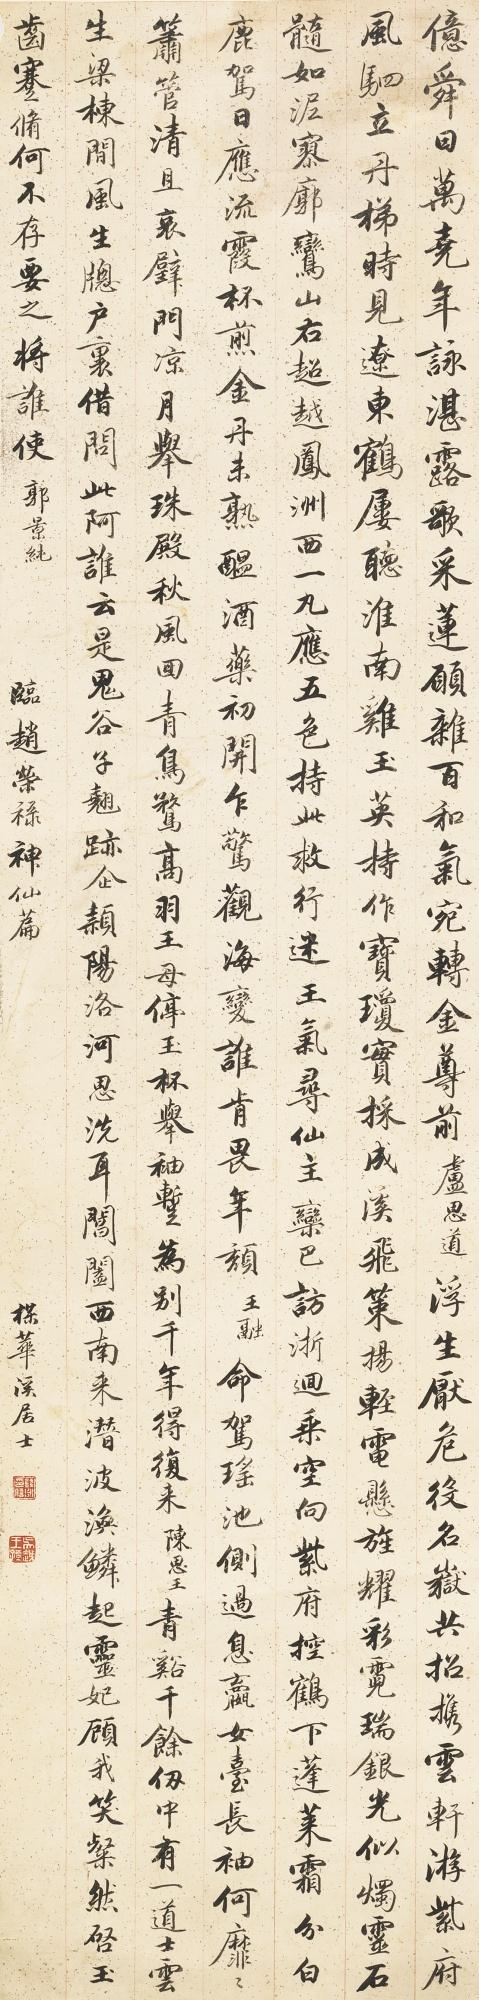 億舜日萬堯年詠湛露歌采蓮願雜百和氣宛轉金尊前盧思道浮生厭危役名嶽共招携雲軒游紫府
風駟立丹梯時見遼東鶴屢聽淮南雞玉英持作寶瓊實採成溪飛策揚輕電懸旌耀彩霓瑞銀光似燭靈石
髓如泥寥廓鸞山右超越鳳洲西一丸應五色持此救行迷王氣尋仙主欒巴訪浙迴乘空向紫府控鶴下蓬萊霜分白
鹿駕日應流霞杯煎金丹未熟醖酒藥初開乍驚觀海變誰肯畏年頹王融命駕瑤池側過息嬴女臺長袖何靡〻
簫管清且哀璧門凉月舉珠殿秋風回青鳥騖高羽王母停玉杯舉袖蹔為別千年得復來陳思王青谿千餘仭中有一道士雲
生梁棟間風生牕户裏借問此阿誰云是鬼谷子翹跡企潁陽洛河思洗耳閶闔西南来潛波渙鱗起靈妃顧我笑粲然啓玉
齒蹇脩何不存要之将誰使郭景純
臨趙榮祿神仙篇
楳華溪居士